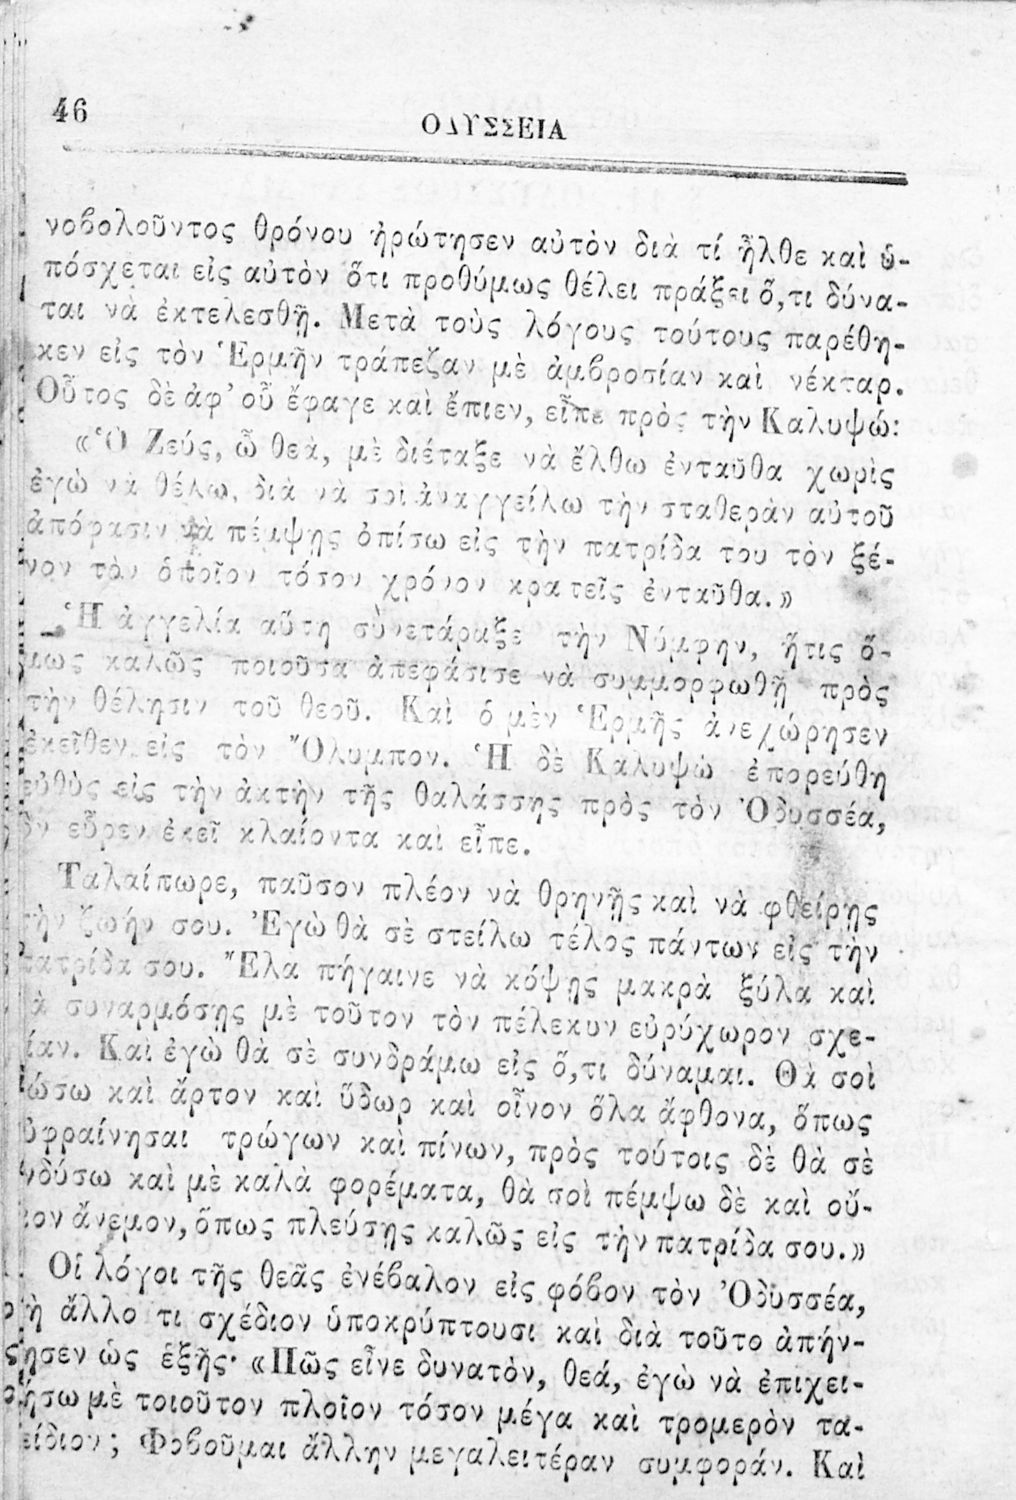 46
ΟΔΥΣΣΕΙΑ
νοβολοῦντος θρόνου ἠρώτησεν αὐτὸν διὰ τί ἦλθε καὶ ὑ-
πόσχεται εἰς αὐτὸν ὅτι προθύμως θέλει πράξει ὅ,τι δύνα-
ται νὰ ἐκτελεσθῇ. Μετὰ τοὺς λόγους τούτους παρέθη-
κεν εἰς τὸν Ἑρμῆν τράπεζαν μὲ ἀμβροσίαν καὶ νέκταρ.
Οὗτος δὲ ἀφ' οὗ ἔφαγε καὶ ἔπιεν, εἶπε πρὸς τὴν Καλυψώ:
«Ὁ Ζεύς, ὦ θεὰ, μὲ διέταξε νὰ ἔλθω ἐνταῦθα χωρὶς
ἐγὼ νὰ θέλω, διὰ νὰ σοὶ ἀναγγείλω τὴν σταθερὰν αὐτοῦ
ἀπόφασιν νὰ πέμψῃς ὀπίσω εἰς τὴν πατρίδα του τὸν ξέ-
νον τὸν ὁποῖον τόσον χρόνον κρατεῖς ἐνταῦθα.»
Ἡ ἀγγελία αὕτη συνετάραξε τὴν Νύμφην, ἥτις ὅ-
μως καλῶς ποιοῦσα ἀπεφάσισε νὰ συμμορφωθῇ πρὸς
τὴν θέλησιν τοῦ θεοῦ. Καὶ ὁ μὲν Ἑρμῆς ἀνεχώρησεν
ἐκεῖθεν εἰς τὸν Ὄλυμπον. Ἡ δὲ Καλυψὼ ἐπορεύθη
εὐθὺς εἰς τὴν ἀκτὴν τῆς θαλάσσης πρὸς τὸν Ὀδυσσέα,
ὃν εὗρεν ἐκεῖ κλαίοντα καὶ εἶπε.
Ταλαίπωρε, παῦσον πλέον νὰ θρηνῇς καὶ νὰ φθείρῃς
τὴν ζωήν σου. Ἐγὼ θὰ σὲ στείλω τέλος πάντων εἰς τὴν
πατρίδα σου. Ἔλα πήγαινε νὰ κόψῃς μακρὰ ξύλα καὶ
ὰ συναρμόσῃς μὲ τοῦτον τὸν πέλεκυν εὐρύχωρον σχε-
ίαν. Καὶ ἐγὼ θὰ σὲ συνδράμω εἰς ὅ,τι δύναμαι. Θὰ σοὶ
ώσω καὶ ἄρτον καὶ ὕδωρ καὶ οἶνον ὅλα ἄφθονα, ὅπως
ὐφραίνησαι τρώγων καὶ πίνων, πρὸς τούτοις δὲ θὰ σὲ
νδύσω καὶ μὲ καλὰ φορέματα, θὰ σοὶ πέμψω δὲ καὶ οὔ-
ιον ἄνεμον, ὅπως πλεύσῃς καλῶς εἰς τὴν πατρίδα σου.»
Οἱ λόγοι τῆς θεᾶς ἐνέβαλον εἰς φόβον τὸν Ὀδυσσέα,
ὴ ἄλλο τι σχέδιον ὑποκρύπτουσι καὶ διὰ τοῦτο ἀπήν-
ησεν ὡς ἑξῆς· «Πῶς εἶνε δυνατὸν, θεά, ἐγὼ νὰ ἐπιχει-
ήσω μὲ τοιοῦτον πλοῖον τόσον μέγα καὶ τρομερὸν τα-
είδιον; Φοβοῦμαι ἄλλην μεγαλειτέραν συμφοράν. Καὶ